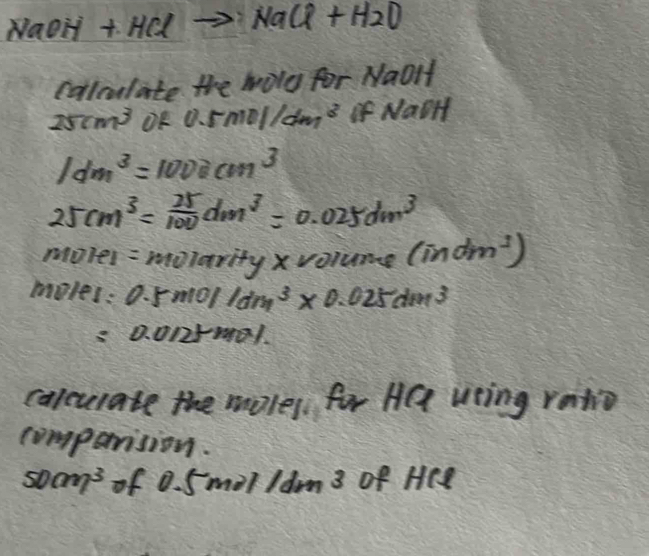 NaOH + HCl → NaCl + H2O
Calculate the moles for NaOH
25cm³ of 0.5mol/dm³ of NaOH
1dm³ = 1000cm³
25cm³ = 25/100 dm³ = 0.025dm³
moles = molarity x volume (in dm³)
moles: 0.5mol/dm³ x 0.025dm3
= 0.0125mol.
Calculate the moles for HCl using ratio
comparision.
50cm³ of 0.5mol/dm3 of HCl